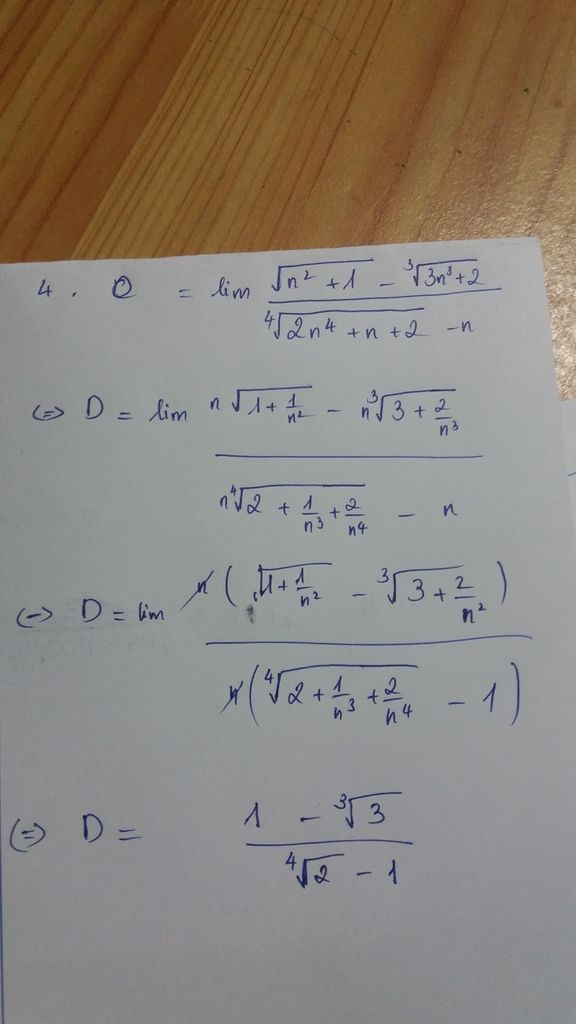 4. D = lim (√(n² + 1) - ³√(3n³ + 2)) / (⁴√(2n⁴ + n + 2) - n)
(=) D = lim (n√(1 + 1/n²) - n³√(3 + 2/n³)) / (n⁴√(2 + 1/n³ + 2/n⁴) - n)
(=) D = lim n(√(1 + 1/n²) - ³√(3 + 2/n²)) / n(⁴√(2 + 1/n³ + 2/n⁴) - 1)
(=) D = (1 - ³√3) / (⁴√2 - 1)